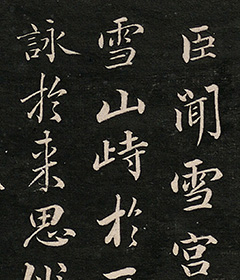 臣聞雪宮
雪山峙於
詠於来思